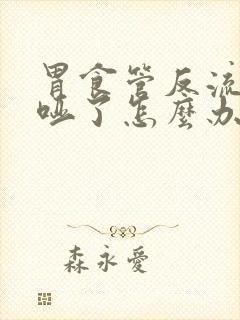 胃食管反流
哑了怎麼办
森永愛